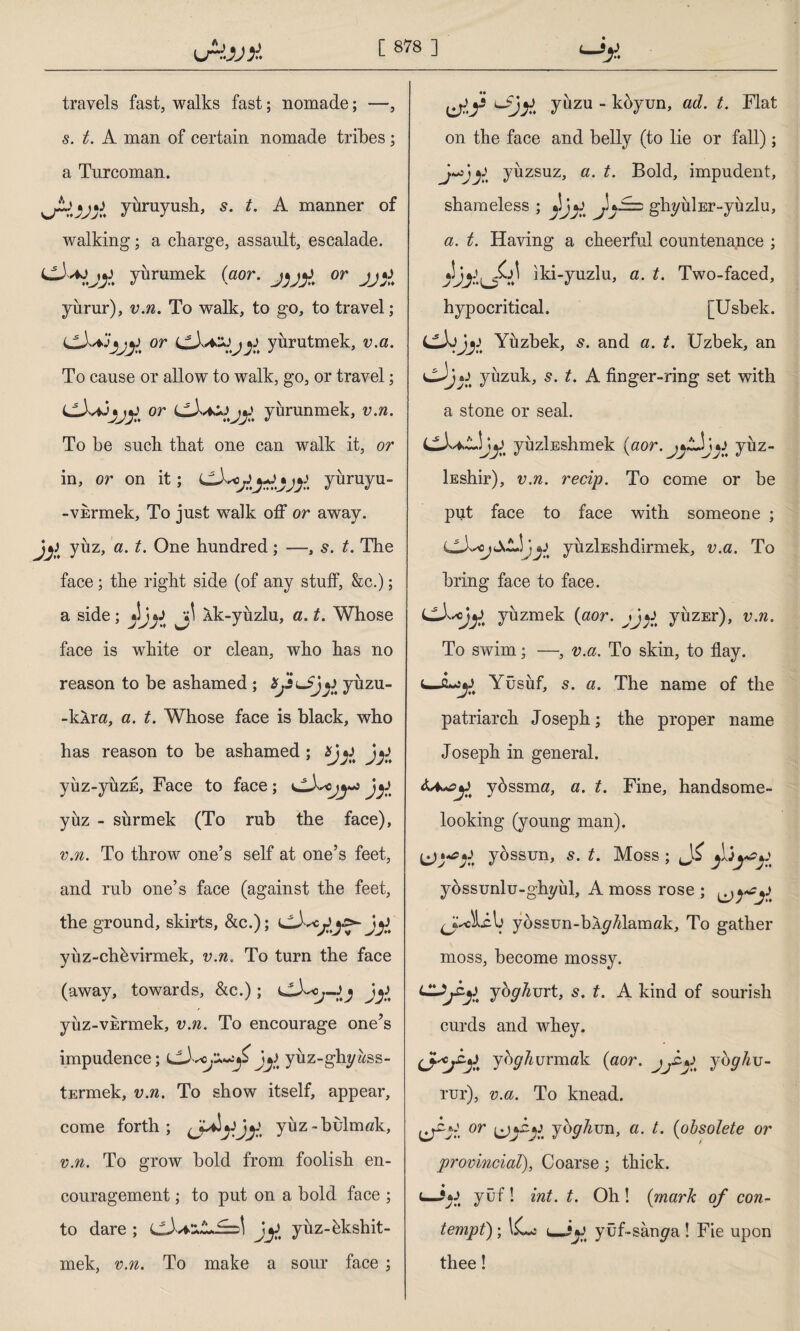 يورويش [ 878 ] يوف
travels fast, walks fast; nomade; —,
s. t. A man of certain nomade tribes;
a Turcoman.
يورويش yùruyush, s. t. A manner of
walking; a charge, assault, escalade.
يوريمك yùrumek (aor. يورور or يورر
yùrur), v.n. To walk, to go, to travel;
يوروتمك or يوريتمك yùrutmek, v.a.
To cause or allow to walk, go, or travel;
يورونمك or يورينمك yùrunmek, v.n.
To be such that one can walk it, or
in, or on it; يورويويرمك yùruyu-
-vᴇrmek, To just walk off or away.
يوز yùz, a. t. One hundred; —, s. t. The
face; the right side (of any stuff, &c.);
a side; آق يوزلو àk-yùzlu, a. t. Whose
face is white or clean, who has no
reason to be ashamed; يوزىقره yùzu-
-kàra, a. t. Whose face is black, who
has reason to be ashamed; يوز يوزه
yùz-yùzᴇ, Face to face; يوز سورمك
yùz - sùrmek (To rub the face),
v.n. To throw one's self at one's feet,
and rub one's face (against the feet,
the ground, skirts, &c.); يوز چويرمك
yùz-chèvirmek, v.n. To turn the face
(away, towards, &c.); يوز ويرمك
yùz-vᴇrmek, v.n. To encourage one's
impudence; يوز كوسترمك yùz-ghyùss-
tᴇrmek, v.n. To show itself, appear,
come forth; يوزبولمق yùz-bùlmak,
v.n. To grow bold from foolish en-
couragement; to put on a bold face;
to dare; يوز اكشتمك yùz-èkshit-
mek, v.n. To make a sour face;
يوزى قويون yùzu - kòyun, ad. t. Flat
on the face and belly (to lie or fall);
يوزسز yùzsuz, a. t. Bold, impudent,
shameless; كولر يوزلو ghyùlᴇr-yùzlu,
a. t. Having a cheerful countenance;
ايكى يوزلو ìki-yuzlu, a. t. Two-faced,
hypocritical. [Usbek.
يوزبك Yùzbek, s. and a. t. Uzbek, an
يوزك yùzuk, s. t. A finger-ring set with
a stone or seal.
يوزلشمك yùzlᴇshmek (aor. يوزلشور yùz-
lᴇshir), v.n. recip. To come or be
put face to face with someone;
يوزلشدرمك yùzlᴇshdìrmek, v.a. To
bring face to face.
يوزمك yùzmek (aor. يوزر yùzᴇr), v.n.
To swim; —, v.a. To skin, to flay.
يوسف Yūsùf, s. a. The name of the
patriarch Joseph; the proper name
Joseph in general.
يوصمه yòssma, a. t. Fine, handsome-
looking (young man).
يوصون yòssun, s. t. Moss; يوصونلو كل
yòssunlu-ghyùl, A moss rose; يوصون
باغلامق yòssun-bàghlamak, To gather
moss, become mossy.
يوغورت yòghurt, s. t. A kind of sourish
curds and whey.
يوغرمق yòghurmak (aor. يوغرر yòghu-
rur), v.a. To knead.
يوغن or يوغون yòghun, a. t. (obsolete or
provincial), Coarse; thick.
يوف yūf! int. t. Oh! (mark of con-
tempt); يوف سكا yūf-sànga! Fie upon
thee!